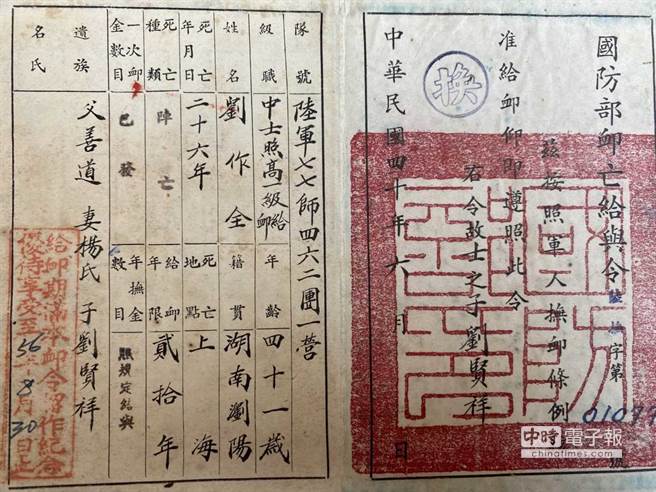 國防部卹亡給與令
撫字第01077號
茲按照軍人撫卹條例
准給卹仰即遵照此令
右令故士之子劉賢祥
中華民國四十年六月 日
換
隊號 陸軍七七師四六二團一營
級職 中士照高一級給卹
年齡 四十一歲
姓名 劉作全
籍貫 湖南瀏陽
死亡年月日 二十六年
死亡地點 上海
死亡種類 陣亡
給卹年限 貳拾年
一次卹金數目 已發
年撫金數目 照規定給與
遺族名氏 父善道 妻楊氏 子劉賢祥
給卹期滿本卹令留作紀念
優待享受至56年8月30日止
中時電子報
chinatimes.com